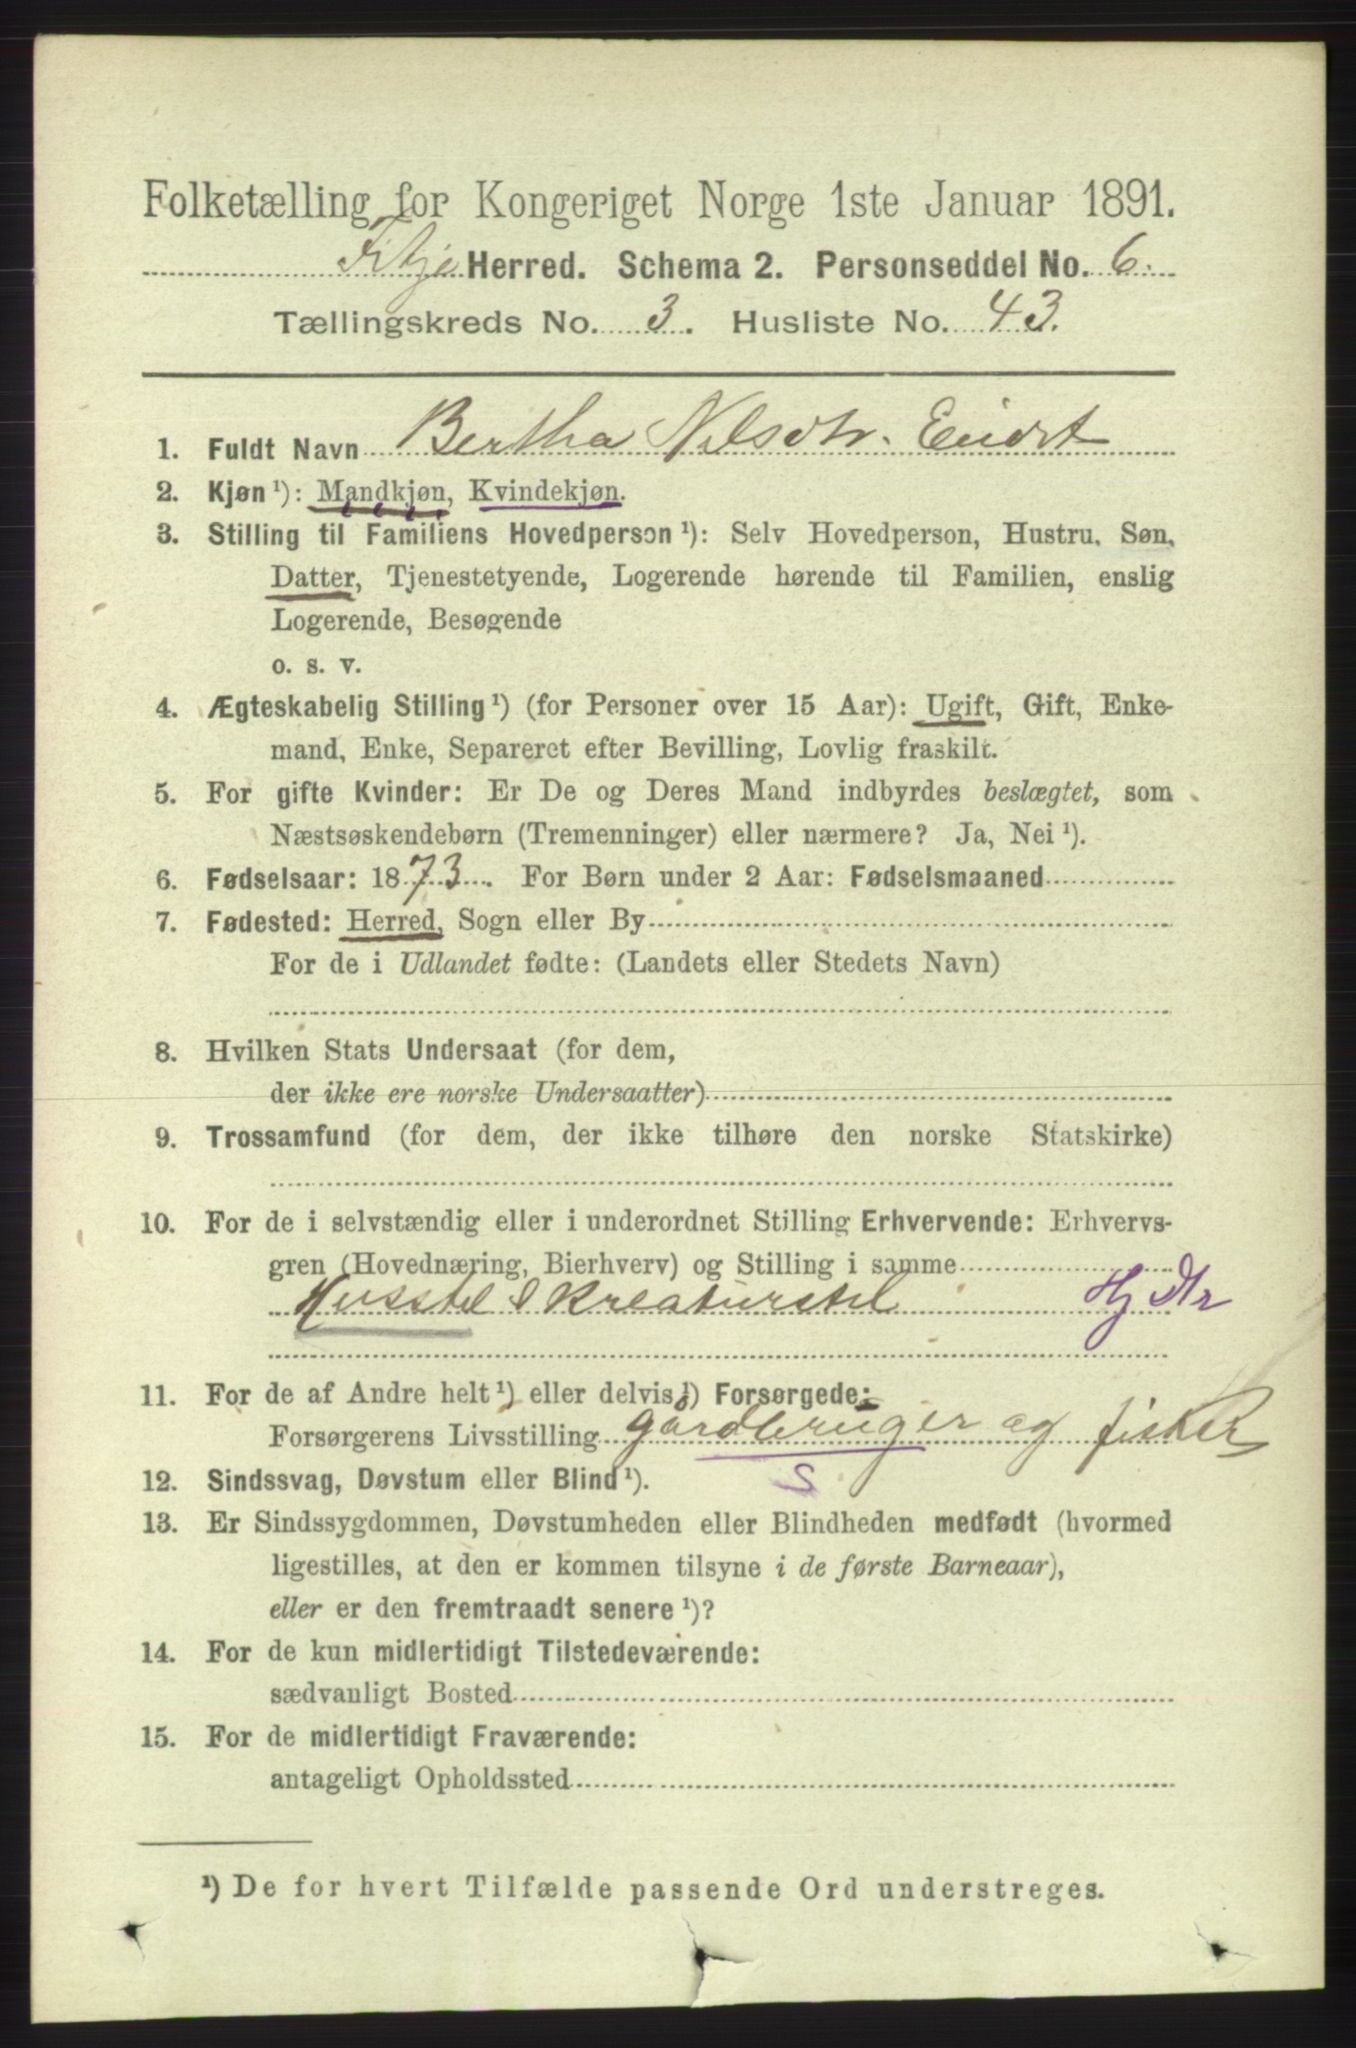 Folketælling for Kongeriget Norge 1ste Januar 1891.
Fitje Herred. Schema 2. Personseddel No. 6.
Tællingskreds No. 3. Husliste No. 43.
1. Fuldt Navn Bertha Nilsdtr.
2. Kjøn ¹): Mandkjøn, Kvindekjøn.
3. Stilling til Familiens Hovedperson ¹): Selv Hovedperson, Hustru, Søn,
Datter, Tjenestetyende, Logerende hørende til Familien, enslig
Logerende, Besøgende
o. s. v.
4. Ægteskabelig Stilling ¹) (for Personer over 15 Aar): Ugift, Gift, Enke-
mand, Enke, Separeret efter Bevilling, Lovlig fraskilt.
5. For gifte Kvinder: Er De og Deres Mand indbyrdes beslægtet, som
Næstsøskendebørn (Tremenninger) eller nærmere? Ja, Nei ¹).
6. Fødselsaar: 1873. For Børn under 2 Aar: Fødselsmaaned
7. Fødested: Herred, Sogn eller By
For de i Udlandet fødte: (Landets eller Stedets Navn)
8. Hvilken Stats Undersaat (for dem,
der ikke ere norske Undersaatter)
9. Trossamfund (for dem, der ikke tilhøre den norske Statskirke)
10. For de i selvstændig eller i underordnet Stilling Erhvervende: Erhvervs-
gren (Hovednæring, Bierhverv) og Stilling i samme
Husstel & kreaturstel Hj Dtr
11. For de af Andre helt ¹) eller delvis ¹) Forsørgede:
Forsørgerens Livsstilling gårdbruger og fisker
S
12. Sindssvag, Døvstum eller Blind ¹).
13. Er Sindssygdommen, Døvstumheden eller Blindheden medfødt (hvormed
ligestilles, at den er kommen tilsyne i de første Barneaar),
eller er den fremtraadt senere ¹)?
14. For de kun midlertidigt Tilstedeværende:
sædvanligt Bosted
15. For de midlertidigt Fraværende:
antageligt Opholdssted
¹) De for hvert Tilfælde passende Ord understreges.